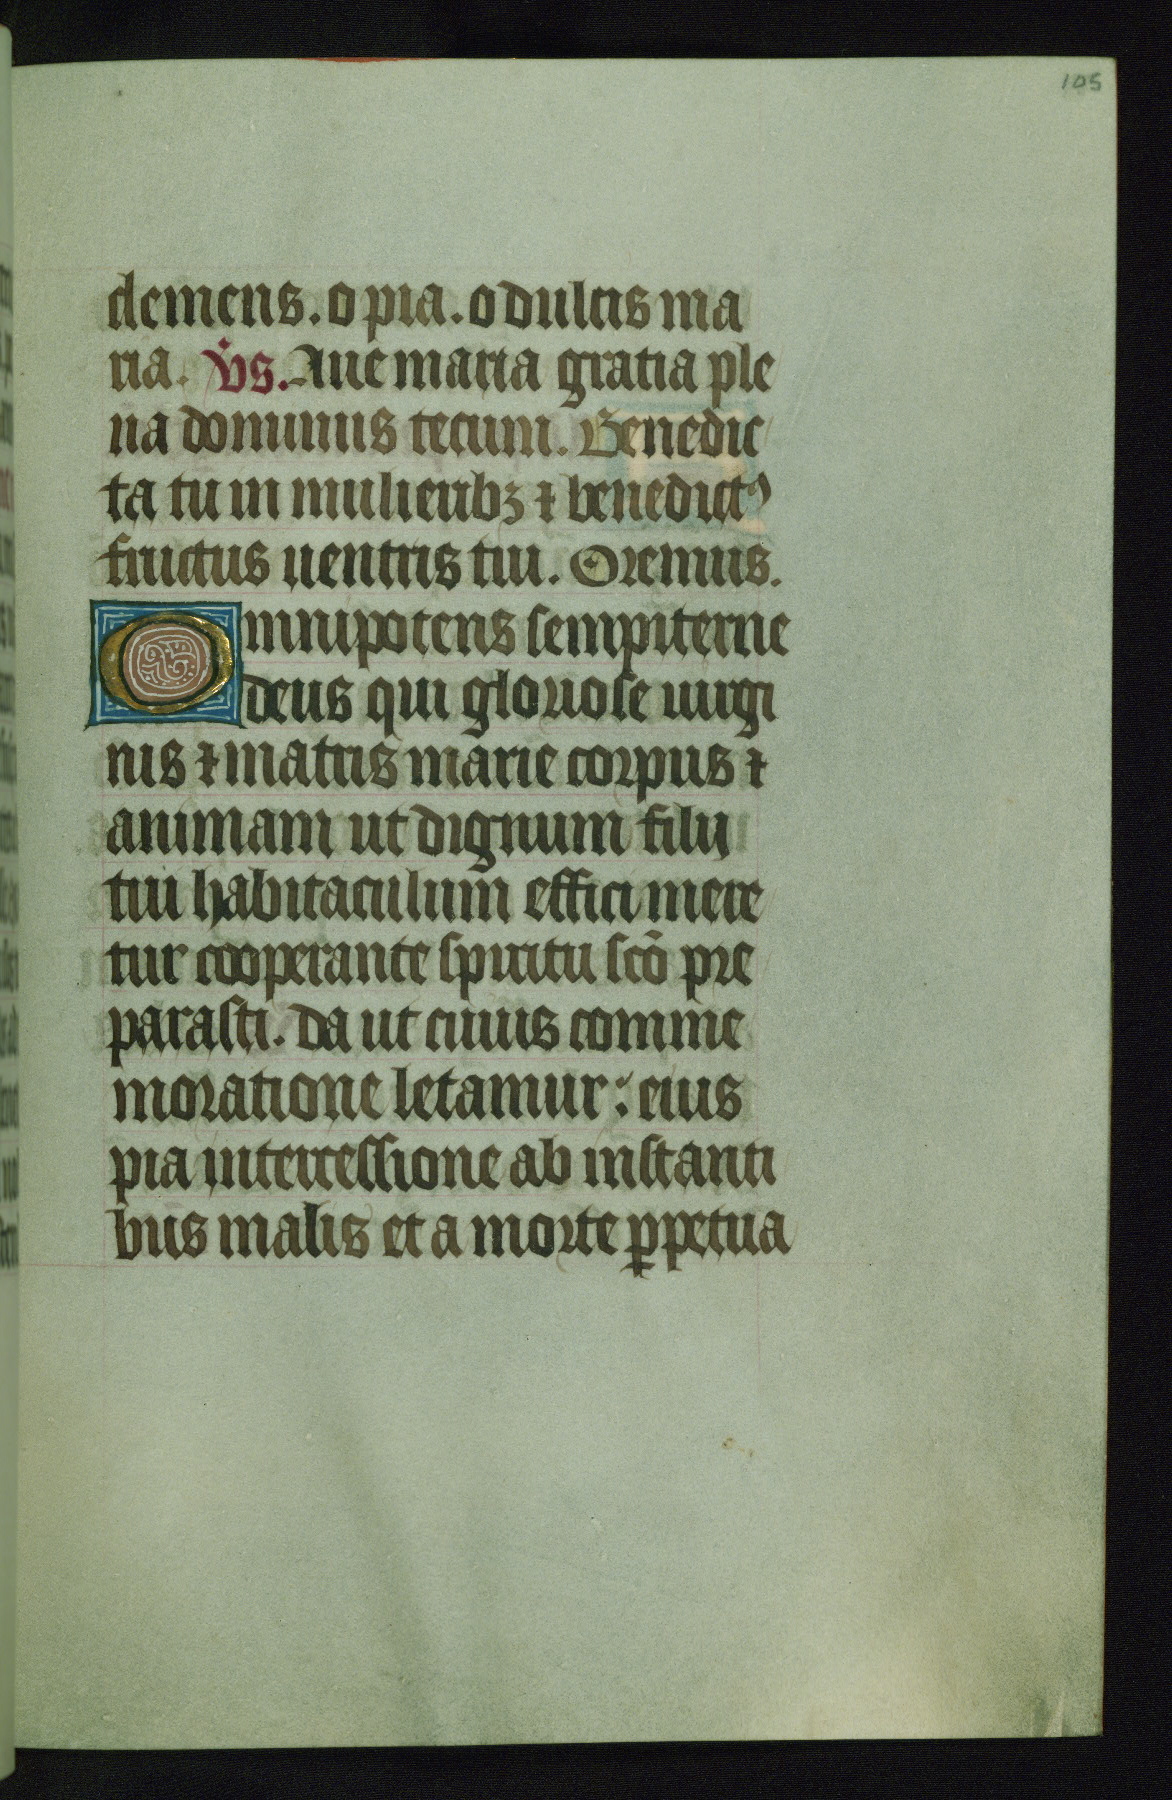 105
clemens. o pia. o dulcis ma
ria. v̇s. Aue maria gratia ple
na dominus tecum. Benedic
ta tu in mulieribꝫ ⁊ benedictꝰ
fructus uentris tui. Oremus.
Omnipotens sempiterne
deus qui gloriose uirgi
nis ⁊ matris marie corpus ⁊
animam ut dignum filij
tui habitaculum effici mere
tur cooperante spiritu sc̄o pre
parasti. Da ut cuius comme
moratione letamur: eius
pia intercessione ab instanti
bus malis et a morte ꝑpetua